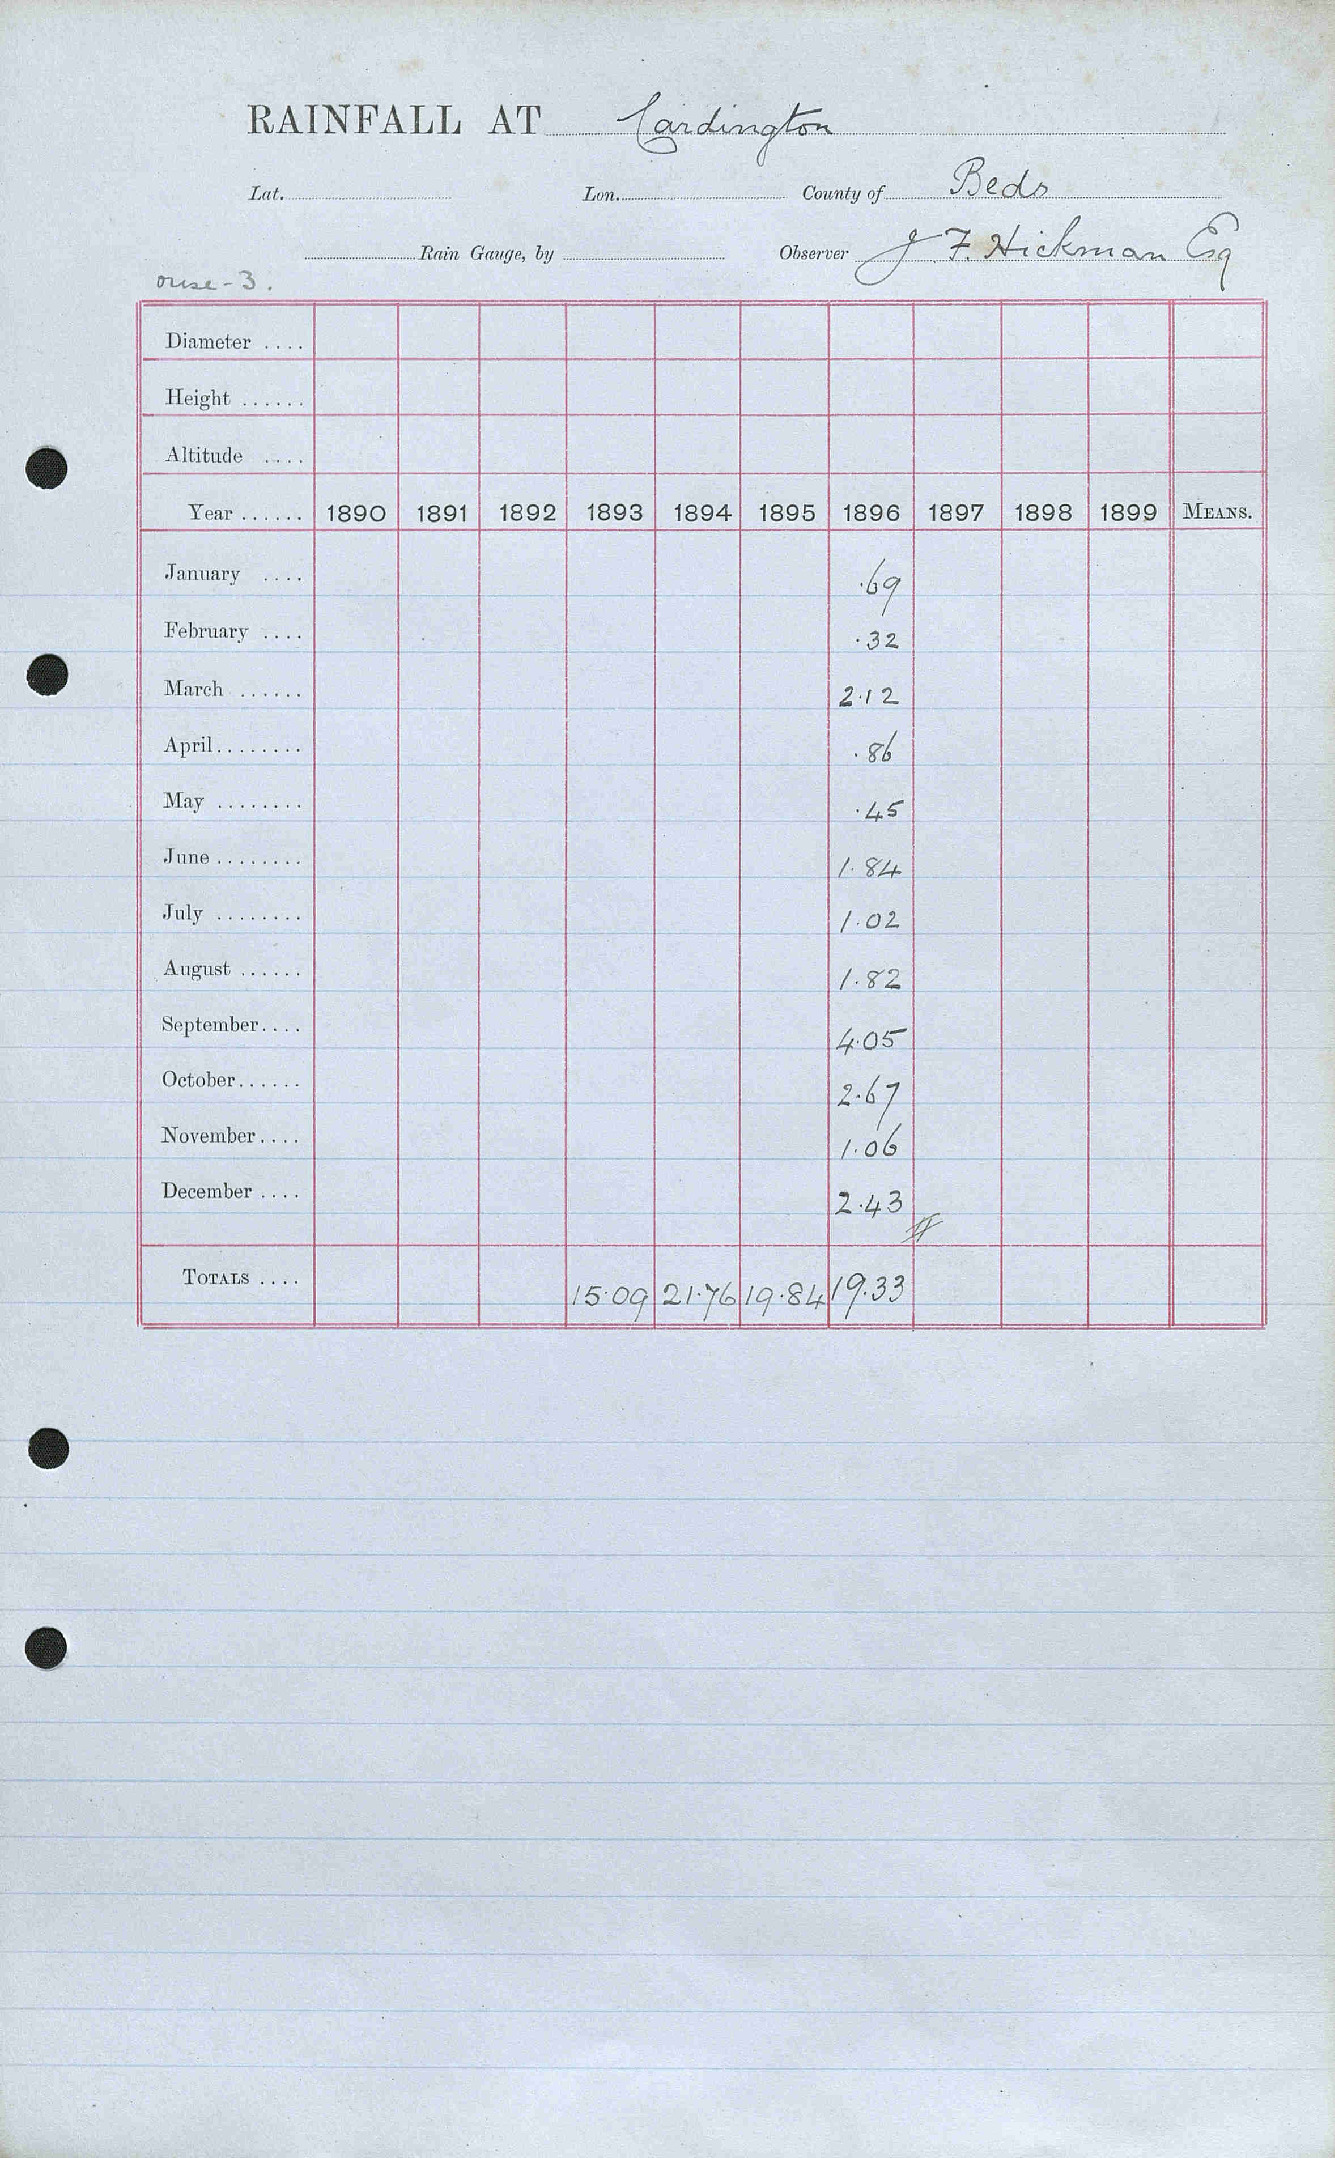 RAINFALL AT Cardington
Lat. Lon. County of Beds
Rain Gauge, by Observer J F. Hickman Esq
ouse - 3.
Diameter ....
Height ......
Altitude ....
Year ...... 1890 1891 1892 1893 1894 1895 1896 1897 1898 1899 MEANS.
January .... .69
February .... .32
March ...... 2.12
April ........ .86
May ........ .45
June ........ 1.84
July ........ 1.02
August ...... 1.82
September .... 4.05
October ...... 2.67
November .... 1.06
December .... 2.43
TOTALS .... 15.09 21.76 19.84 19.33